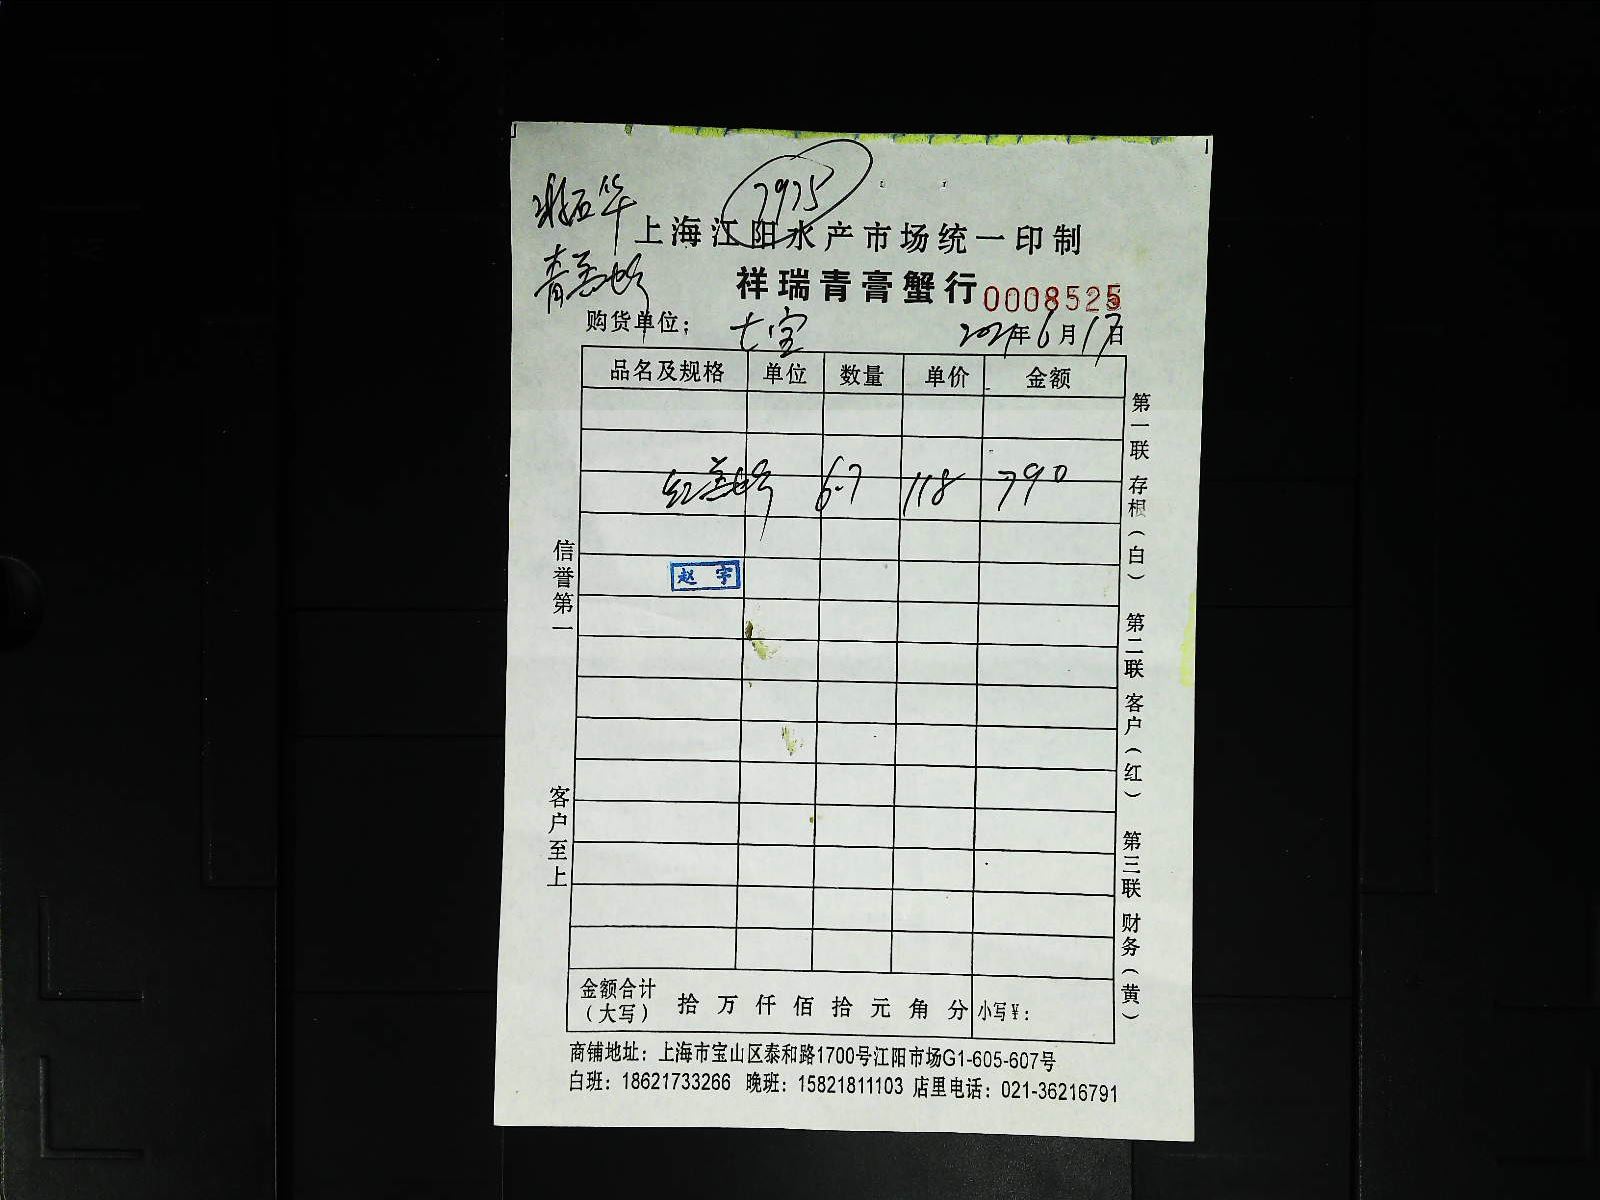 7975
上海江阳水产市场统一印制
祥瑞青膏蟹行 0008525
购货单位： 七宝 2021年6月17日
品名及规格 单位 数量 单价 金额
6.7 118 790
赵宇
信誉第一
客户至上
第一联 存根（白） 第二联 客户（红） 第三联 财务（黄）
金额合计（大写） 拾 万 仟 佰 拾 元 角 分 小写¥：
商铺地址：上海市宝山区泰和路1700号江阳市场G1-605-607号
白班：18621733266 晚班：15821811103 店里电话：021-36216791